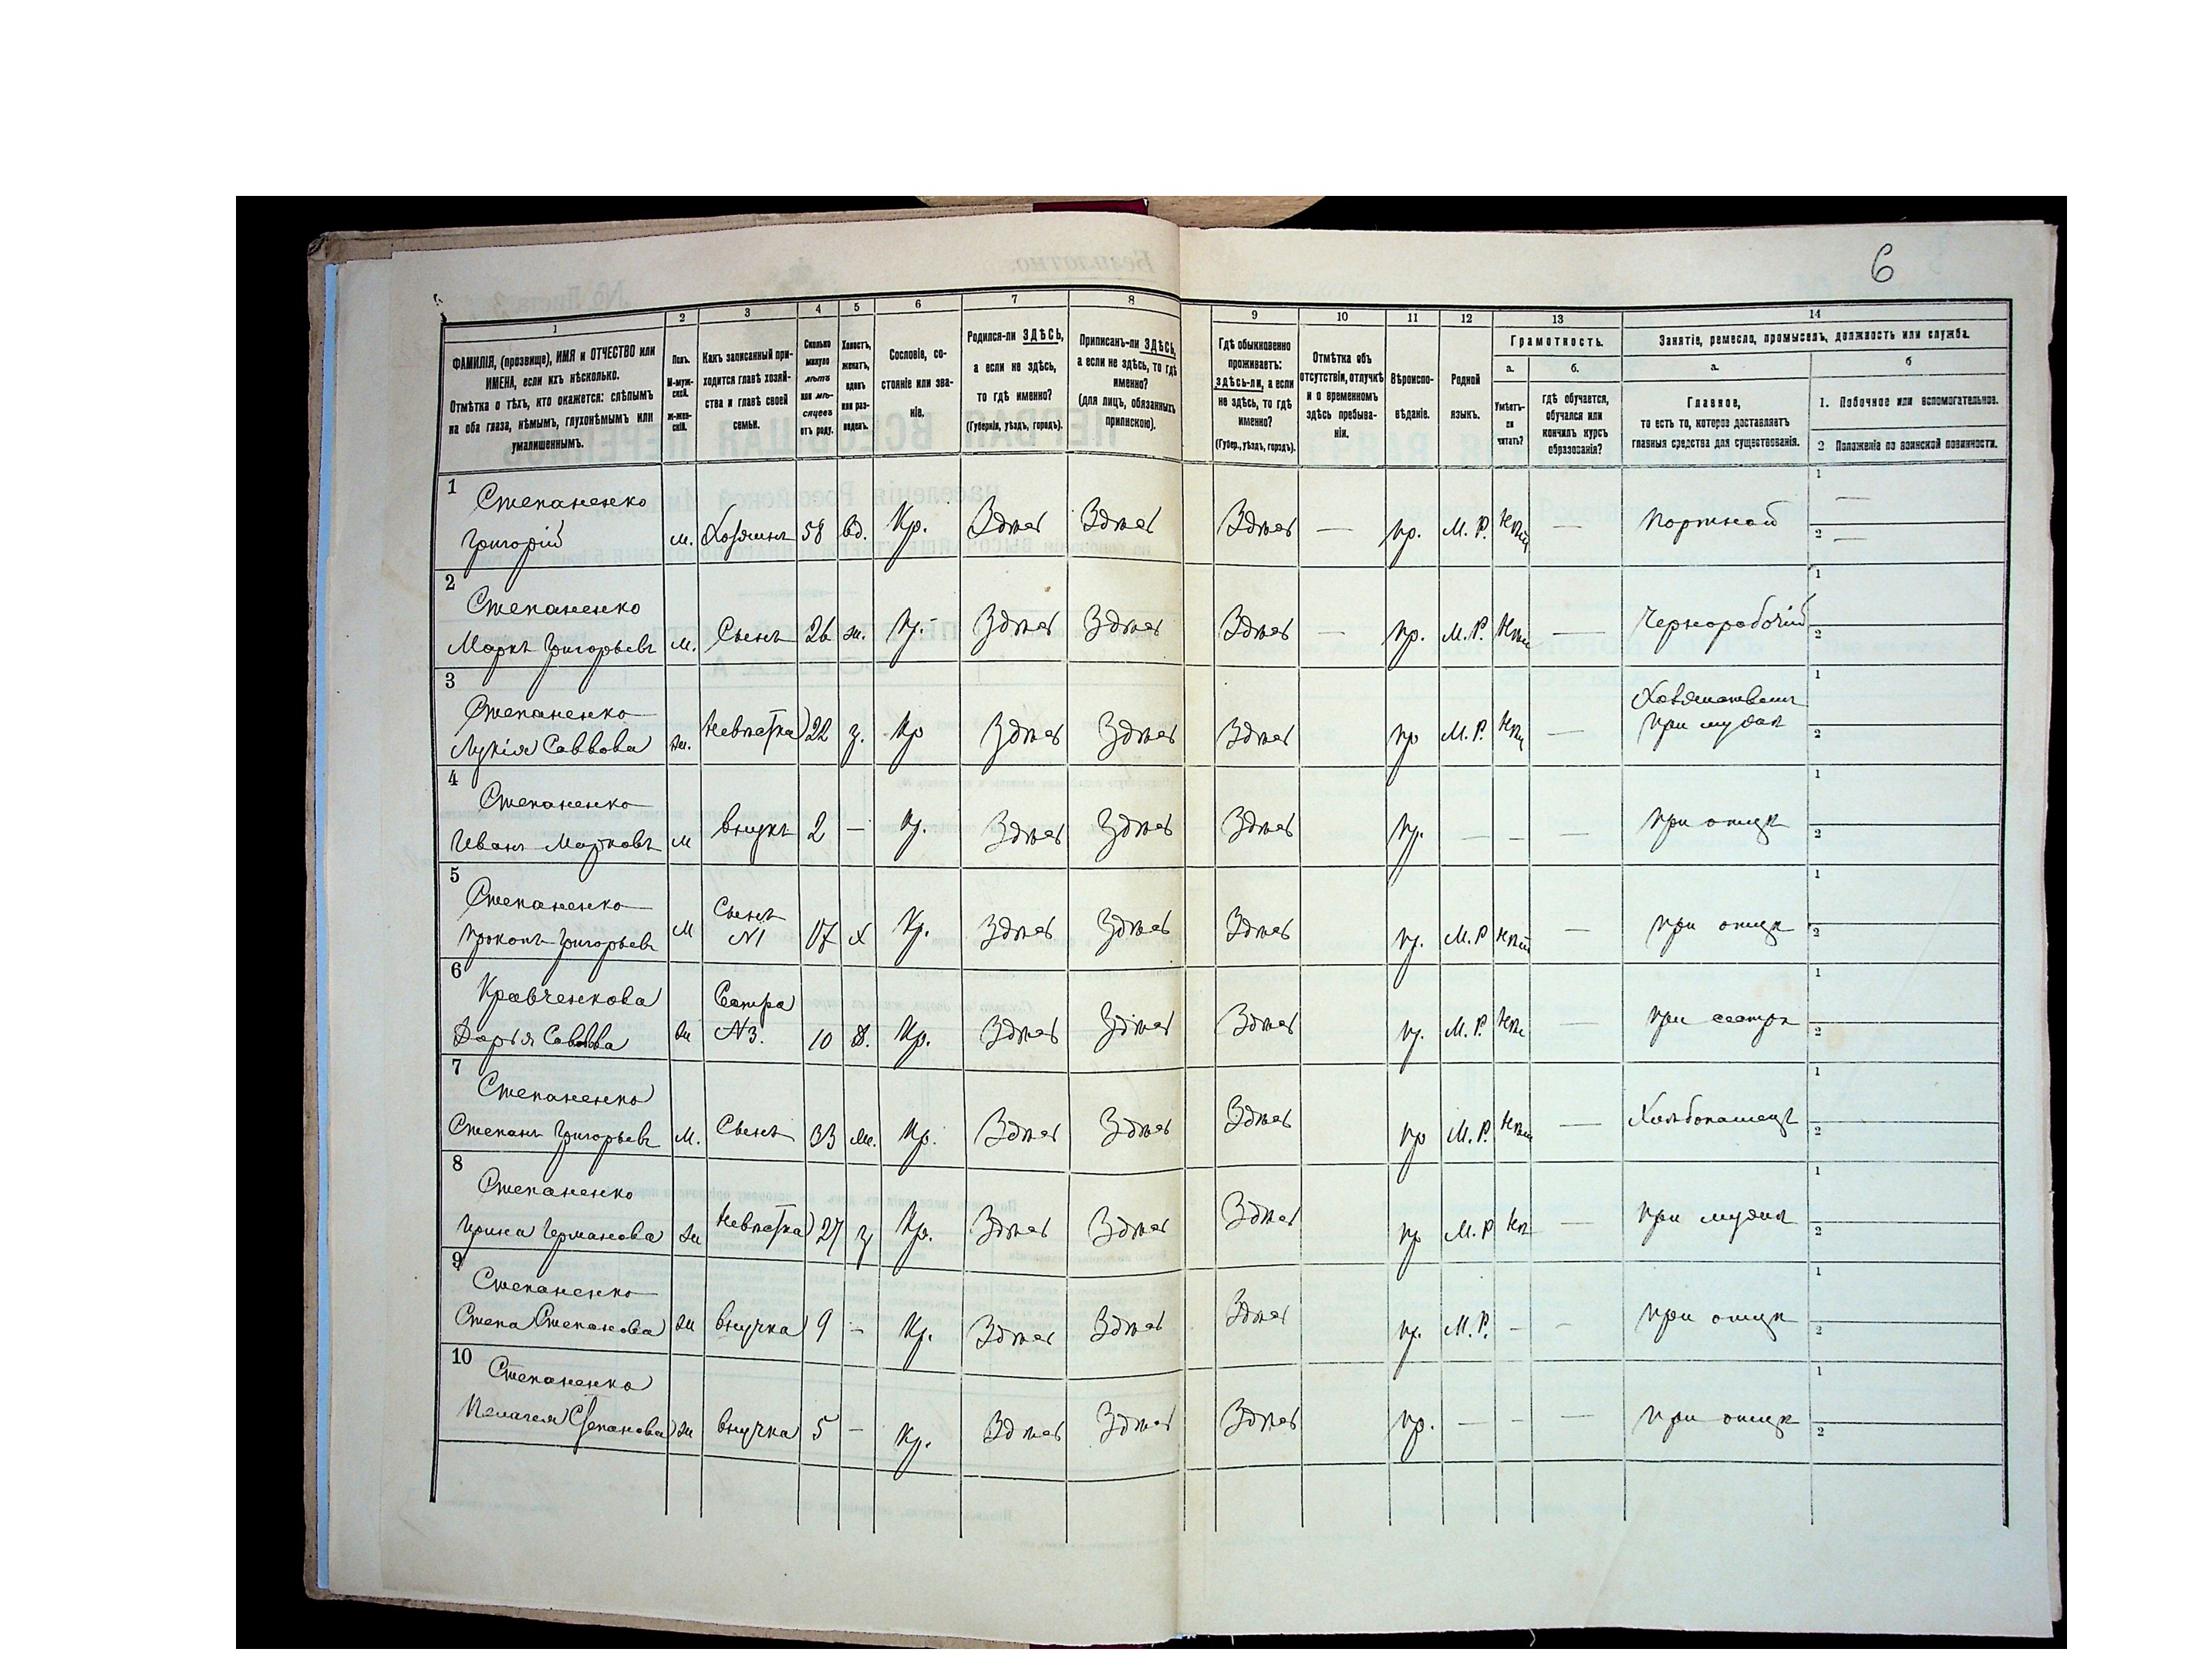 6
1 2 3 4 5 6 7 8 9 10 11 12 13 14
ФАМИЛІЯ, (прозвище), ИМЯ и ОТЧЕСТВО или
ИМЕНА, если ихъ нѣсколько.
Отмѣтка о тѣхъ, кто окажется: слѣпымъ
на оба глаза, нѣмымъ, глухонѣмымъ или
умалишеннымъ.
Полъ.
М-муж-
ской.
ж-жен-
скій.
Какъ записанный при-
ходится главѣ хозяй-
ства и главѣ своей
семьи.
Сколько
минуло
лѣтъ
или мѣ-
сяцевъ
отъ роду.
Холостъ,
женатъ,
вдовъ
или раз-
веденъ.
Сословіе, со-
стояніе или зва-
ніе.
Родился-ли ЗДѢСЬ,
а если не здѣсь,
то гдѣ именно?
(Губернія, уѣздъ, городъ).
Приписанъ-ли ЗДѢСЬ,
а если не здѣсь, то гдѣ
именно?
(для лицъ, обязанныхъ
припискою).
Гдѣ обыкновенно
проживаетъ:
здѣсь-ли, а если
не здѣсь, то гдѣ
именно?
(Губер., уѣздъ, городъ).
Отмѣтка объ
отсутствіи, отлучкѣ
и о временномъ
здѣсь пребыва-
ніи.
Вѣроиспо-
вѣданіе.
Родной
языкъ.
Грамотность.
а.
Умѣетъ-
ли
читать?
б.
гдѣ обучается,
обучался или
кончилъ курсъ
образованія?
Занятіе, ремесло, промыселъ, должность или служба.
а.
Главное,
то есть то, которое доставляетъ
главныя средства для существованія.
б
1. Побочное или вспомогательное.
2 Положеніе по воинской повинности.
1 Степаненко
Григорій м. Хозяинъ 58 вд. Кр. Здѣсь Здѣсь Здѣсь — пр. М. Р. — Портной 1 — 2 —
2 Степаненко
Маркъ Григорьевъ м. Сынъ 26 ж. Кр. Здѣсь Здѣсь Здѣсь — пр. М. Р. — Чернорабочій 1 2
3 Степаненко
Лукія Саввова ж. Невѣстка 22 з. Кр Здѣсь Здѣсь Здѣсь пр М. Р. — при мужѣ 1 2
4 Степаненко
Иванъ Марковъ м внукъ 2 — Кр. Здѣсь Здѣсь Здѣсь пр. — — — при отцѣ 1 2
5 Степаненко
Прокопъ Григорьевъ м Сынъ
№1 17 х Кр. Здѣсь Здѣсь Здѣсь пр. М. Р — при отцѣ 1 2
6 Кравченкова
Дарья Саввова ж Сестра
№3. 10 Кр. Здѣсь Здѣсь Здѣсь пр. М. Р. — при сестрѣ 1 2
7 Степаненко
Степанъ Григорьевъ м. Сынъ 33 ж. Кр. Здѣсь Здѣсь Здѣсь пр М. Р. — Хлѣбопашецъ 1 2
8 Степаненко
Ирина Германова ж Невѣстка 27 з Кр. Здѣсь Здѣсь Здѣсь пр М. Р — при мужѣ 1 2
9 Степаненко
Степа Степанова ж внучка 9 — Кр. Здѣсь Здѣсь Здѣсь пр. М. Р. — — при отцѣ 1 2
10 Степаненко
Пелагея Степанова ж внучка 5 — Кр. Здѣсь Здѣсь Здѣсь пр. — — — при отцѣ 1 2